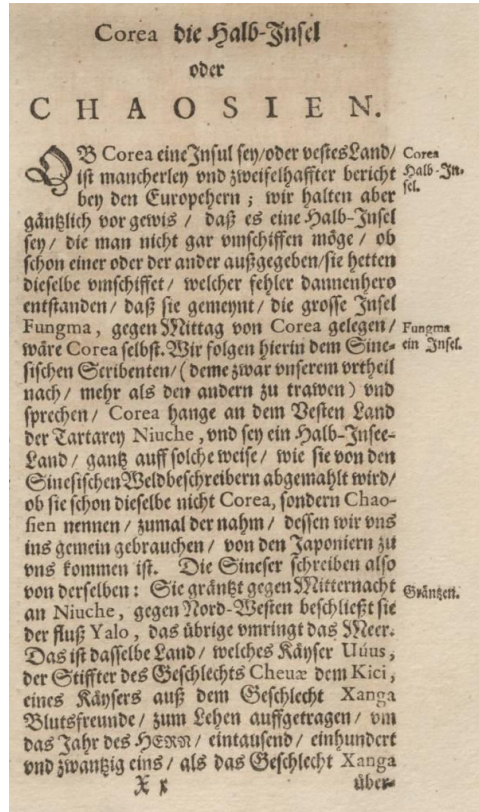 Corea die Halb-Insel
oder
CHAOSIEN.
OB Corea eine Insul sey/oder vestes Land/
ist mancherley vnd zweifelhaffter bericht
bey den Europehern; wir halten aber
gäntzlich vor gewis / daß es eine Halb-Insel
sey / die man nicht gar vmschiffen möge / ob
schon einer oder der ander außgegeben/sie hetten
dieselbe vmschiffet / welcher fehler dannenhero
entstanden / daß sie gemeynt / die grosse Insel
Fungma, gegen Mittag von Corea gelegen /
wäre Corea selbst. Wir folgen hierin dem Sine-
sischen Scribenten/ (deme zwar vnserem vrtheil
nach / mehr als den andern zu trawen) vnd
sprechen / Corea hange an dem Vesten Land
der Tartarey Niuche, vnd sey ein Halb-Insee-
Land / gantz auff solche weise / wie sie von den
Sinesischen Weldbeschreibern abgemahlt wird/
ob sie schon dieselbe nicht Corea, sondern Chao-
sien nennen / zumal der nahm / dessen wir vns
ins gemein gebrauchen / von den Japoniern zu
vns kommen ist. Die Sineser schreiben also
von derselben: Sie gräntzt gegen Mitternacht
an Niuche, gegen Nord-Westen beschließt sie
der fluß Yalo, das übrige vmringt das Meer.
Das ist dasselbe Land / welches Käyser Uúus,
der Stiffter des Geschlechts Cheuæ dem Kici,
eines Käysers auß dem Geschlecht Xanga
Blutsfreunde / zum Lehen auffgetragen / vm
das Jahr des HERN / eintausend / einhundert
vnd zwantzig eins / als das Geschlecht Xanga
X x
über-
Corea
Halb-In-
sel.
Fungma
ein Insel.
Gräntzen.